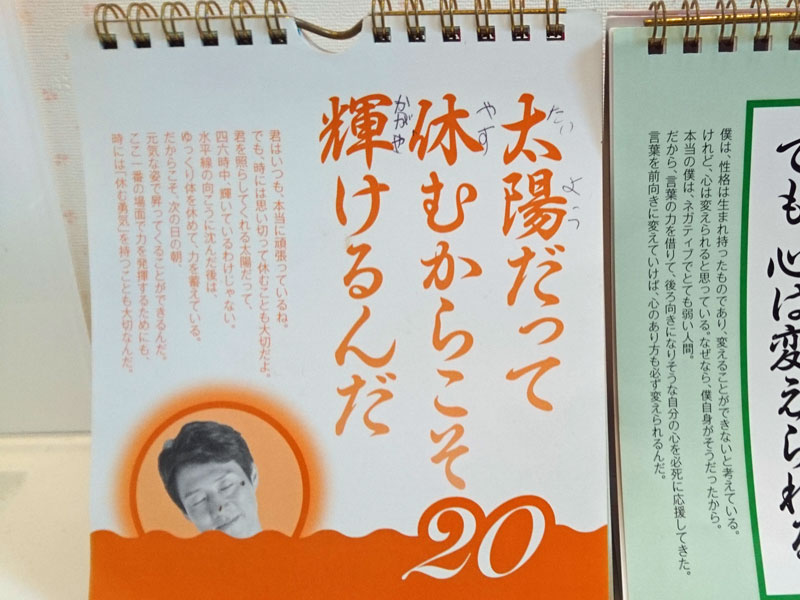 太陽だって
休むからこそ
輝けるんだ
たい
よう
やす
かがや
君はいつも、本当に頑張っているね。
でも、時には思い切って休むことも大切だよ。
君を照らしてくれる太陽だって、
四六時中、輝いているわけじゃない。
水平線の向こうに沈んだ後は、
ゆっくり体を休めて、力を蓄えている。
だからこそ、次の日の朝、
元気な姿で昇ってくることができるんだ。
ここ一番の場面で力を発揮するためにも、
時には「休む勇気」を持つことも大切なんだ。
20
でも 心は変えられる
僕は、性格は生まれ持ったものであり、変えることができないと考えている。
けれど、心は変えられると思っている。なぜなら、僕自身がそうだったから。
本当の僕は、ネガティブでとても弱い人間。
だから、言葉の力を借りて、後ろ向きになりそうな自分の心を必死に応援してきた。
言葉を前向きに変えていけば、心のあり方も必ず変えられるんだ。